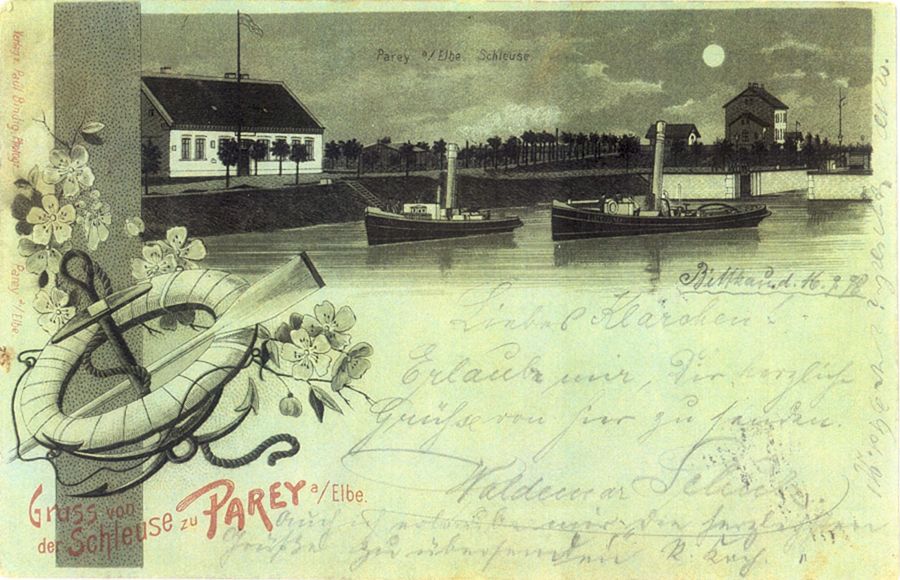 Parey a/Elbe Schleuse.
Verlag v. Paul Bindig, Photogr.
Parey a/Elbe.
Bittkau d. 16. 9. 98
Liebes Klärchen!
Erlaube mir, Dir herzliche
Grüße von hier zu senden.
Waldemar
Gruss von
der Schleuse zu PAREY a/Elbe.
Auch ich erlaube mir die herzlichsten
Grüße zu übersenden R. Koch.